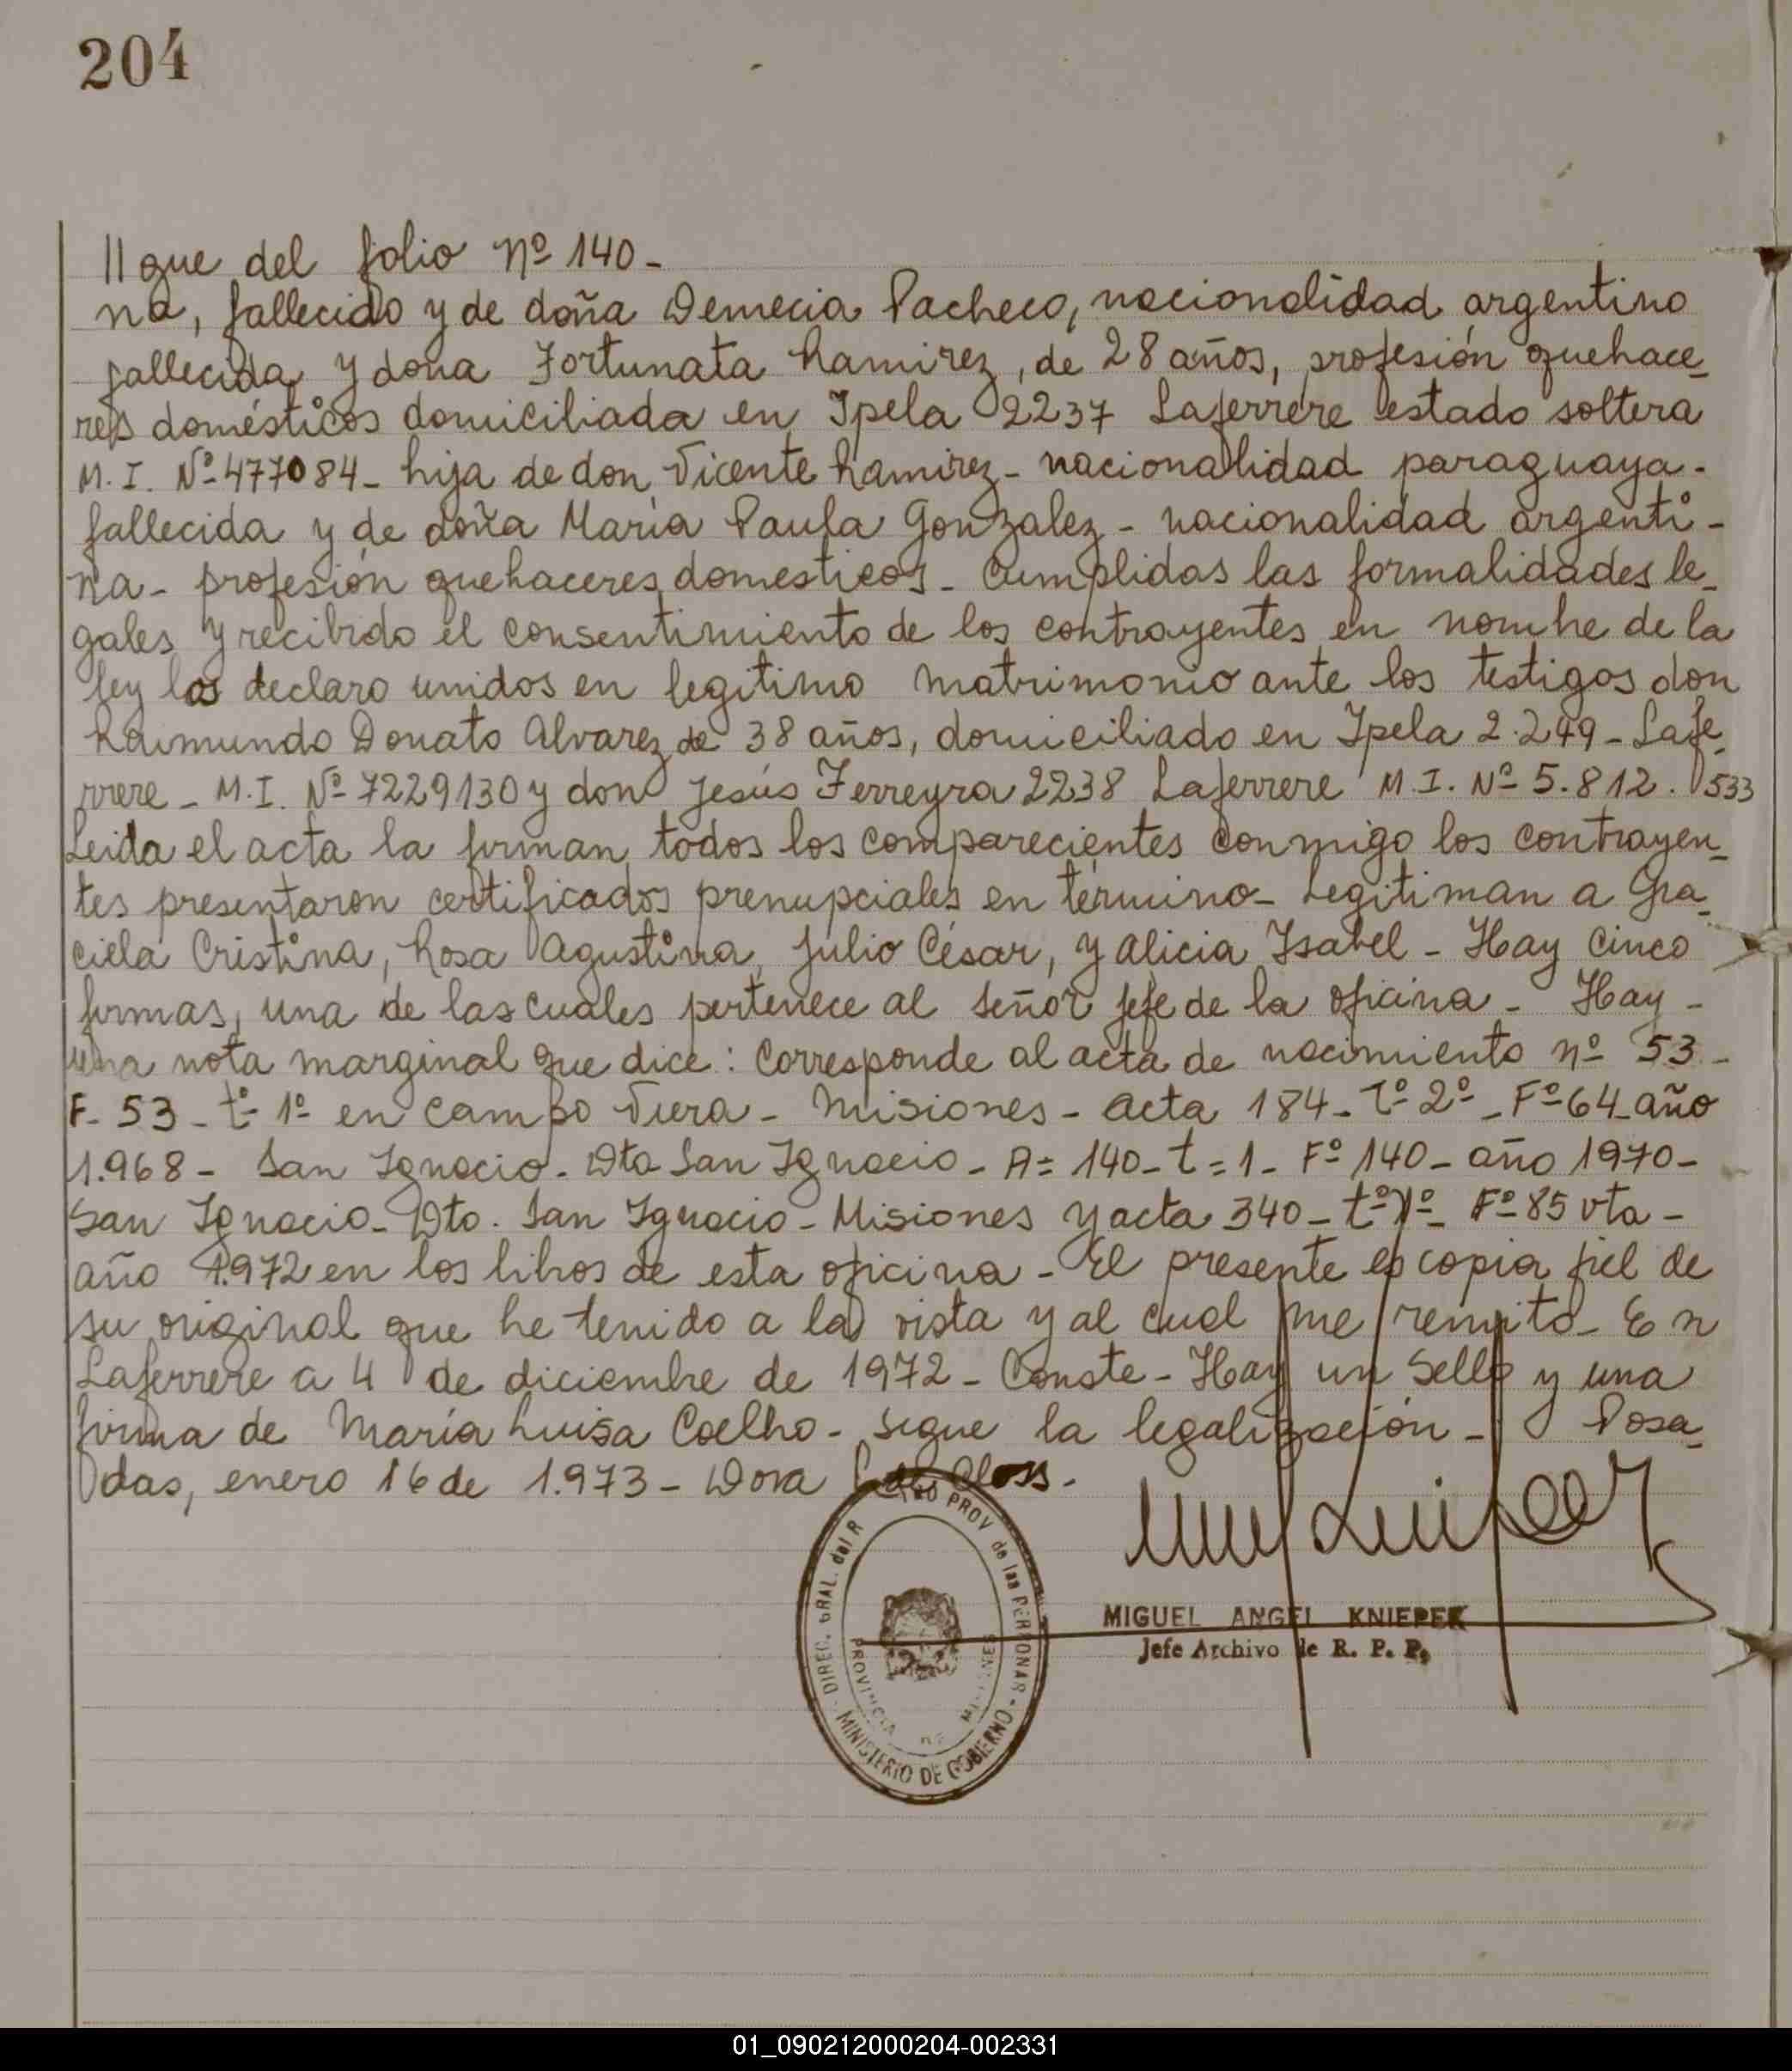 204
//gue del folio Nº 140-
na, fallecido y de doña Demecia Pacheco, nacionalidad argentino
fallecida y doña Fortunata Ramirez, de 28 años, profesión quehace-
res domésticos domiciliada en Ipela 2237 Laferrere estado soltera
M. I. Nº 477084- hija de don Vicente Ramirez- nacionalidad paraguaya-
fallecida y de doña María Paula Gonzalez - nacionalidad argenti-
na- profesión quehaceres domesticos- Cumplidas las formalidades le-
gales y recibido el consentimiento de los contrayentes en nombre de la
ley los declaro unidos en legitimo matrimonio ante los testigos don
Raimundo Donato Alvarez de 38 años, domiciliado en Ipela 2.249- Lafe-
rrere - M. I. Nº 7229130 y don Jesús Ferreyra 2238 Laferrere M. I. Nº 5.812.533
Leida el acta la firman todos los comparecientes conmigo los contrayen-
tes presentaron certificados prenupciales en término- Legitiman a Gra-
ciela Cristina, Rosa Agustina, Julio César, y Alicia Isabel - Hay cinco
firmas, una de las cuales pertenece al señor jefe de la oficina - Hay -
una nota marginal que dice: Corresponde al acta de nacimiento nº 53-
F- 53 - tº 1º en Campo Viera - Misiones - Acta 184- Tº 2º - Fº 64- año
1.968 - San Ignacio- Dto San Ignacio - A= 140- t=1- Fº 140- año 1970-
San Ignacio- Dto. San Ignacio - Misiones y acta 340- tº 1º- Fº 85 vta-
año 1.972 en los libros de esta oficina - El presente es copia fiel de
su original que he tenido a la vista y al cual me remito- En
Laferrere a 4 de diciembre de 1972 - Conste- Hay un sello y una
firma de María Luisa Coelho- Sigue la legalización - Posa-
das, enero 16 de 1.973 - Dora
DIREC. GRAL. del R PROV de las PERSONAS - MINISTERIO DE GOBIERNO
PROVINCIA DE MISIONES
MIGUEL ANGEL KNIEPER
Jefe Archivo de R. P. P.
01_090212000204-002331